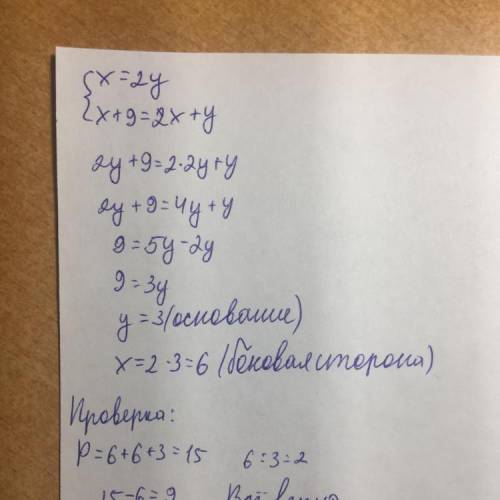 {x=2y
{x+9=2x+y
2y+9=2·2y+y
2y+9=4y+y
9=5y-2y
9=3y
y=3(основание)
x=2·3=6 (боковая сторона)
Проверка:
P=6+6+3=15 6:3=2
15-6=9 Всё